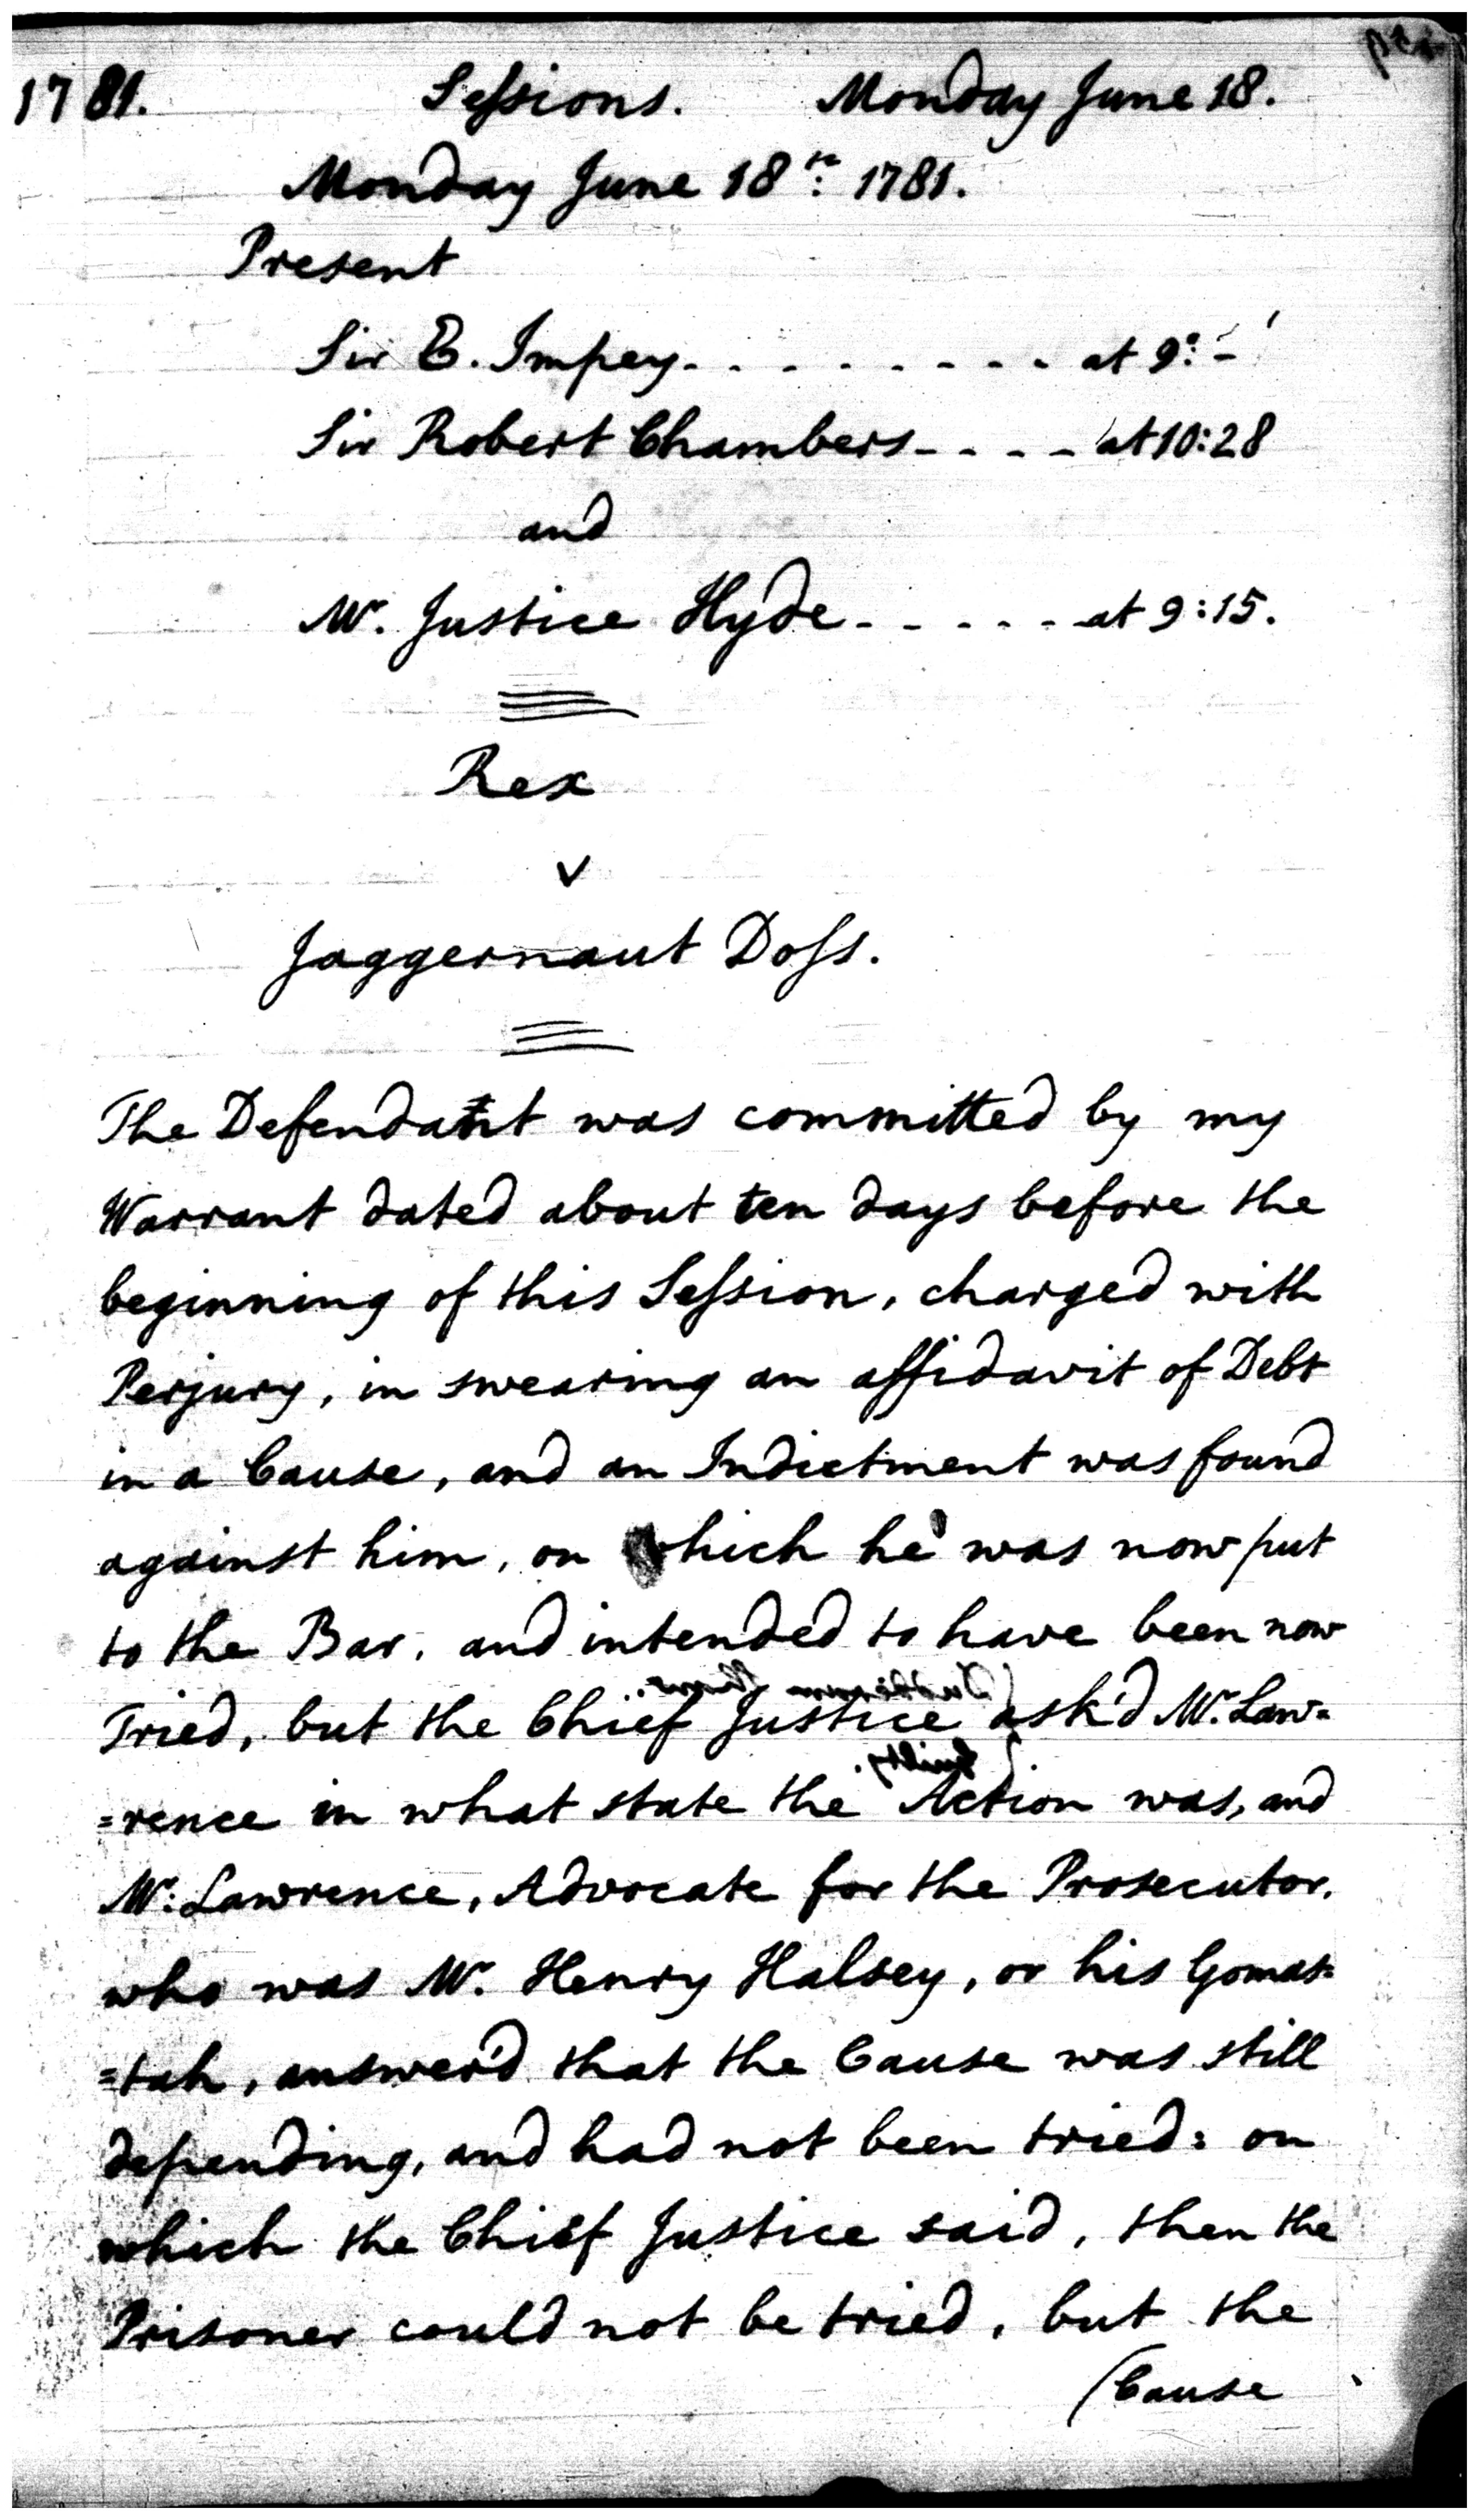 1781. Sessions. Monday June 18.
Monday June 18th. 1781.
Present
Sir E. Impey. - - - - - - - - at 9: -'
Sir Robert Chambers - - - - at 10:28
and
Mr. Justice Hyde - - - - - at 9:15.
Rex
v
Jaggernaut Doss.
The Defendant was committed by my
Warrant dated about ten days before the
beginning of this Session, charged with
Perjury, in swearing an affidavit of Debt
in a Cause, and an Indictment was found
against him, on which he was now put
to the Bar, and intended to have been now
Tried, but the Chief Justice ask'd Mr. Law=
=rence in what state the Action was, and
Mr. Lawrence, Advocate for the Prosecutor,
who was Mr. Henry Halsey, or his Gomas=
=tah, answer'd that the Cause was still
depending, and had not been tried: on
which the Chief Justice said, then the
Prisoner could not be tried, but the
(Cause